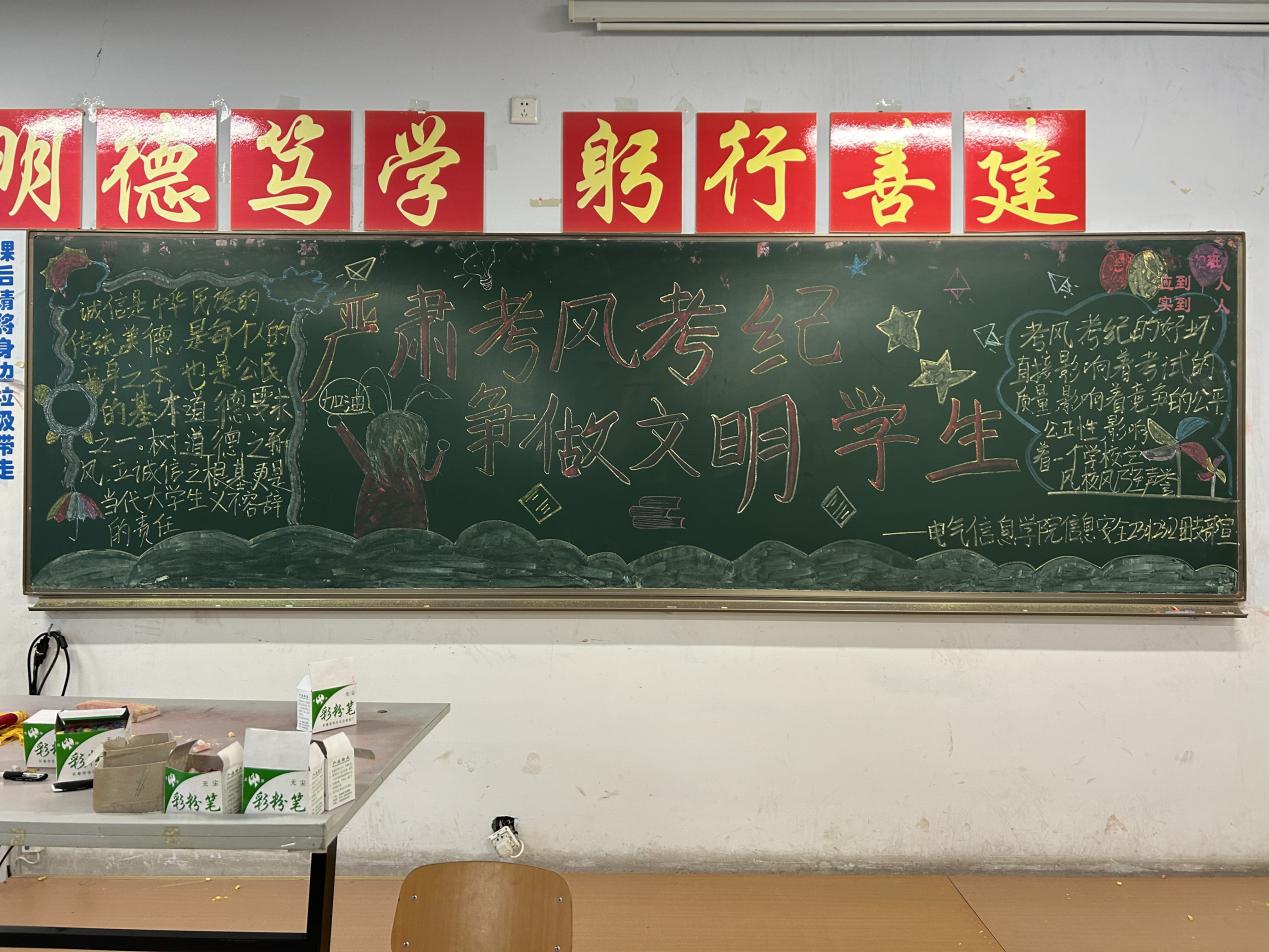 明德笃学 躬行善建
课后请将身边垃圾带走
诚信是中华民族的
传统美德,是每个人的
立身之本,也是公民
的基本道德要求
之一。树道德之新
风,立诚信之根基更是
当代大学生义不容辞
的责任
严肃考风考纪
争做文明学生
加油
班
应到 人
实到 人
考风考纪的好坏
直接影响着考试的
质量影响着竞争的公平
公正性影响
着一个学校
风校风乃至声誉
——电气信息学院信息安全团支部宣
无尘
彩粉笔
彩粉笔
无尘
彩粉笔
彩粉笔